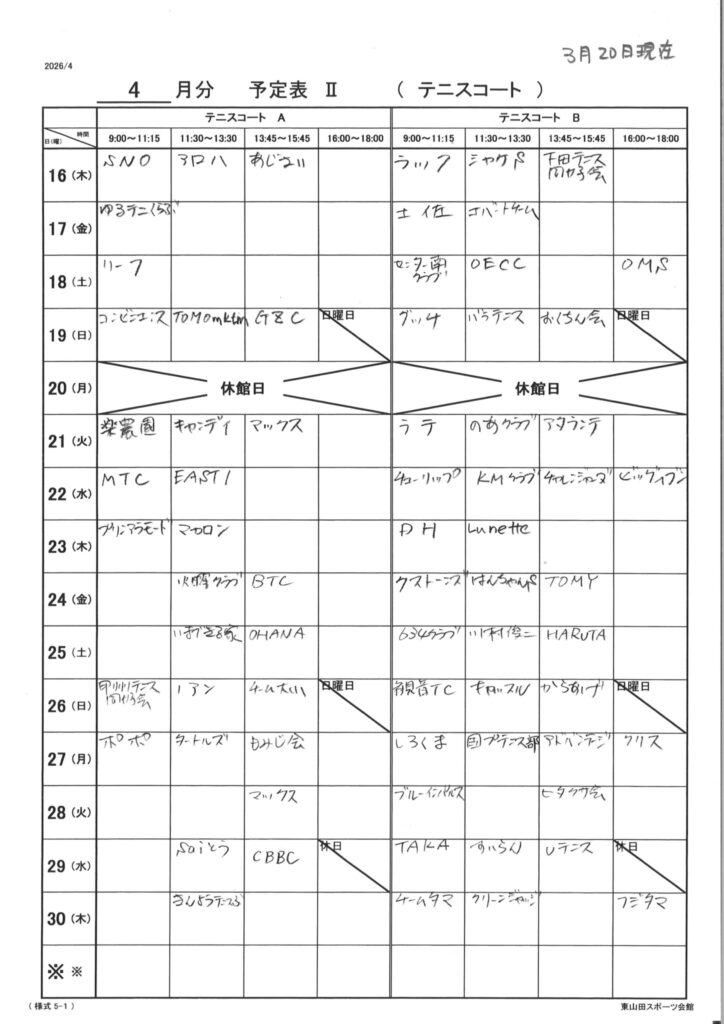 3月20日現在
2026/4
4 月分 予定表 Ⅱ ( テニスコート )
テニスコート A テニスコート B
時間
日(曜) 9:00～11:15 11:30～13:30 13:45～15:45 16:00～18:00 9:00～11:15 11:30～13:30 13:45～15:45 16:00～18:00
16(木) SNO アロハ あじさい ラック シャケS 下田テニス
同好会
17(金) ゆるテニくらぶ 土佐 エバートチーム
18(土) リーフ センター南 OECC OMS
クラブ
19(日) コンビニエンス TOMOmktm GBC 日曜日 グッチ バラテニス おくちん会 日曜日
20(月) 休館日 休館日
21(火) 楽農園 キャンディ マックス ラテ のあクラブ アタランテ
22(水) MTC EAST1 チューリップ KMクラブ チャレンジャーズ ビッグイブン
23(木) プリンアラモード マカロン DH Lunette
24(金) クラブ BTC クストーンズ はんちゃんS TOMY
25(土) いまでる家 OHANA 634クラブ 川村俊二 HARUTA
26(日) 甲州テニス ノアン チーム大い 日曜日 観音TC キャッスル からあげ 日曜日
同好会
27(月) ポポ タートルズ もみじ会 しろくま 国プテニス部 アドバンテージ クリス
28(火) マックス ブルーインパルス ヒタクサ会
29(水) Saiとう CBBC 休日 TAKA すいらん Uテニス 休日
30(木) さんようテニスぶ チームタマ クリーンジャッジ フジタマ
※ ※
( 様式 5-1 ) 東山田スポーツ会館